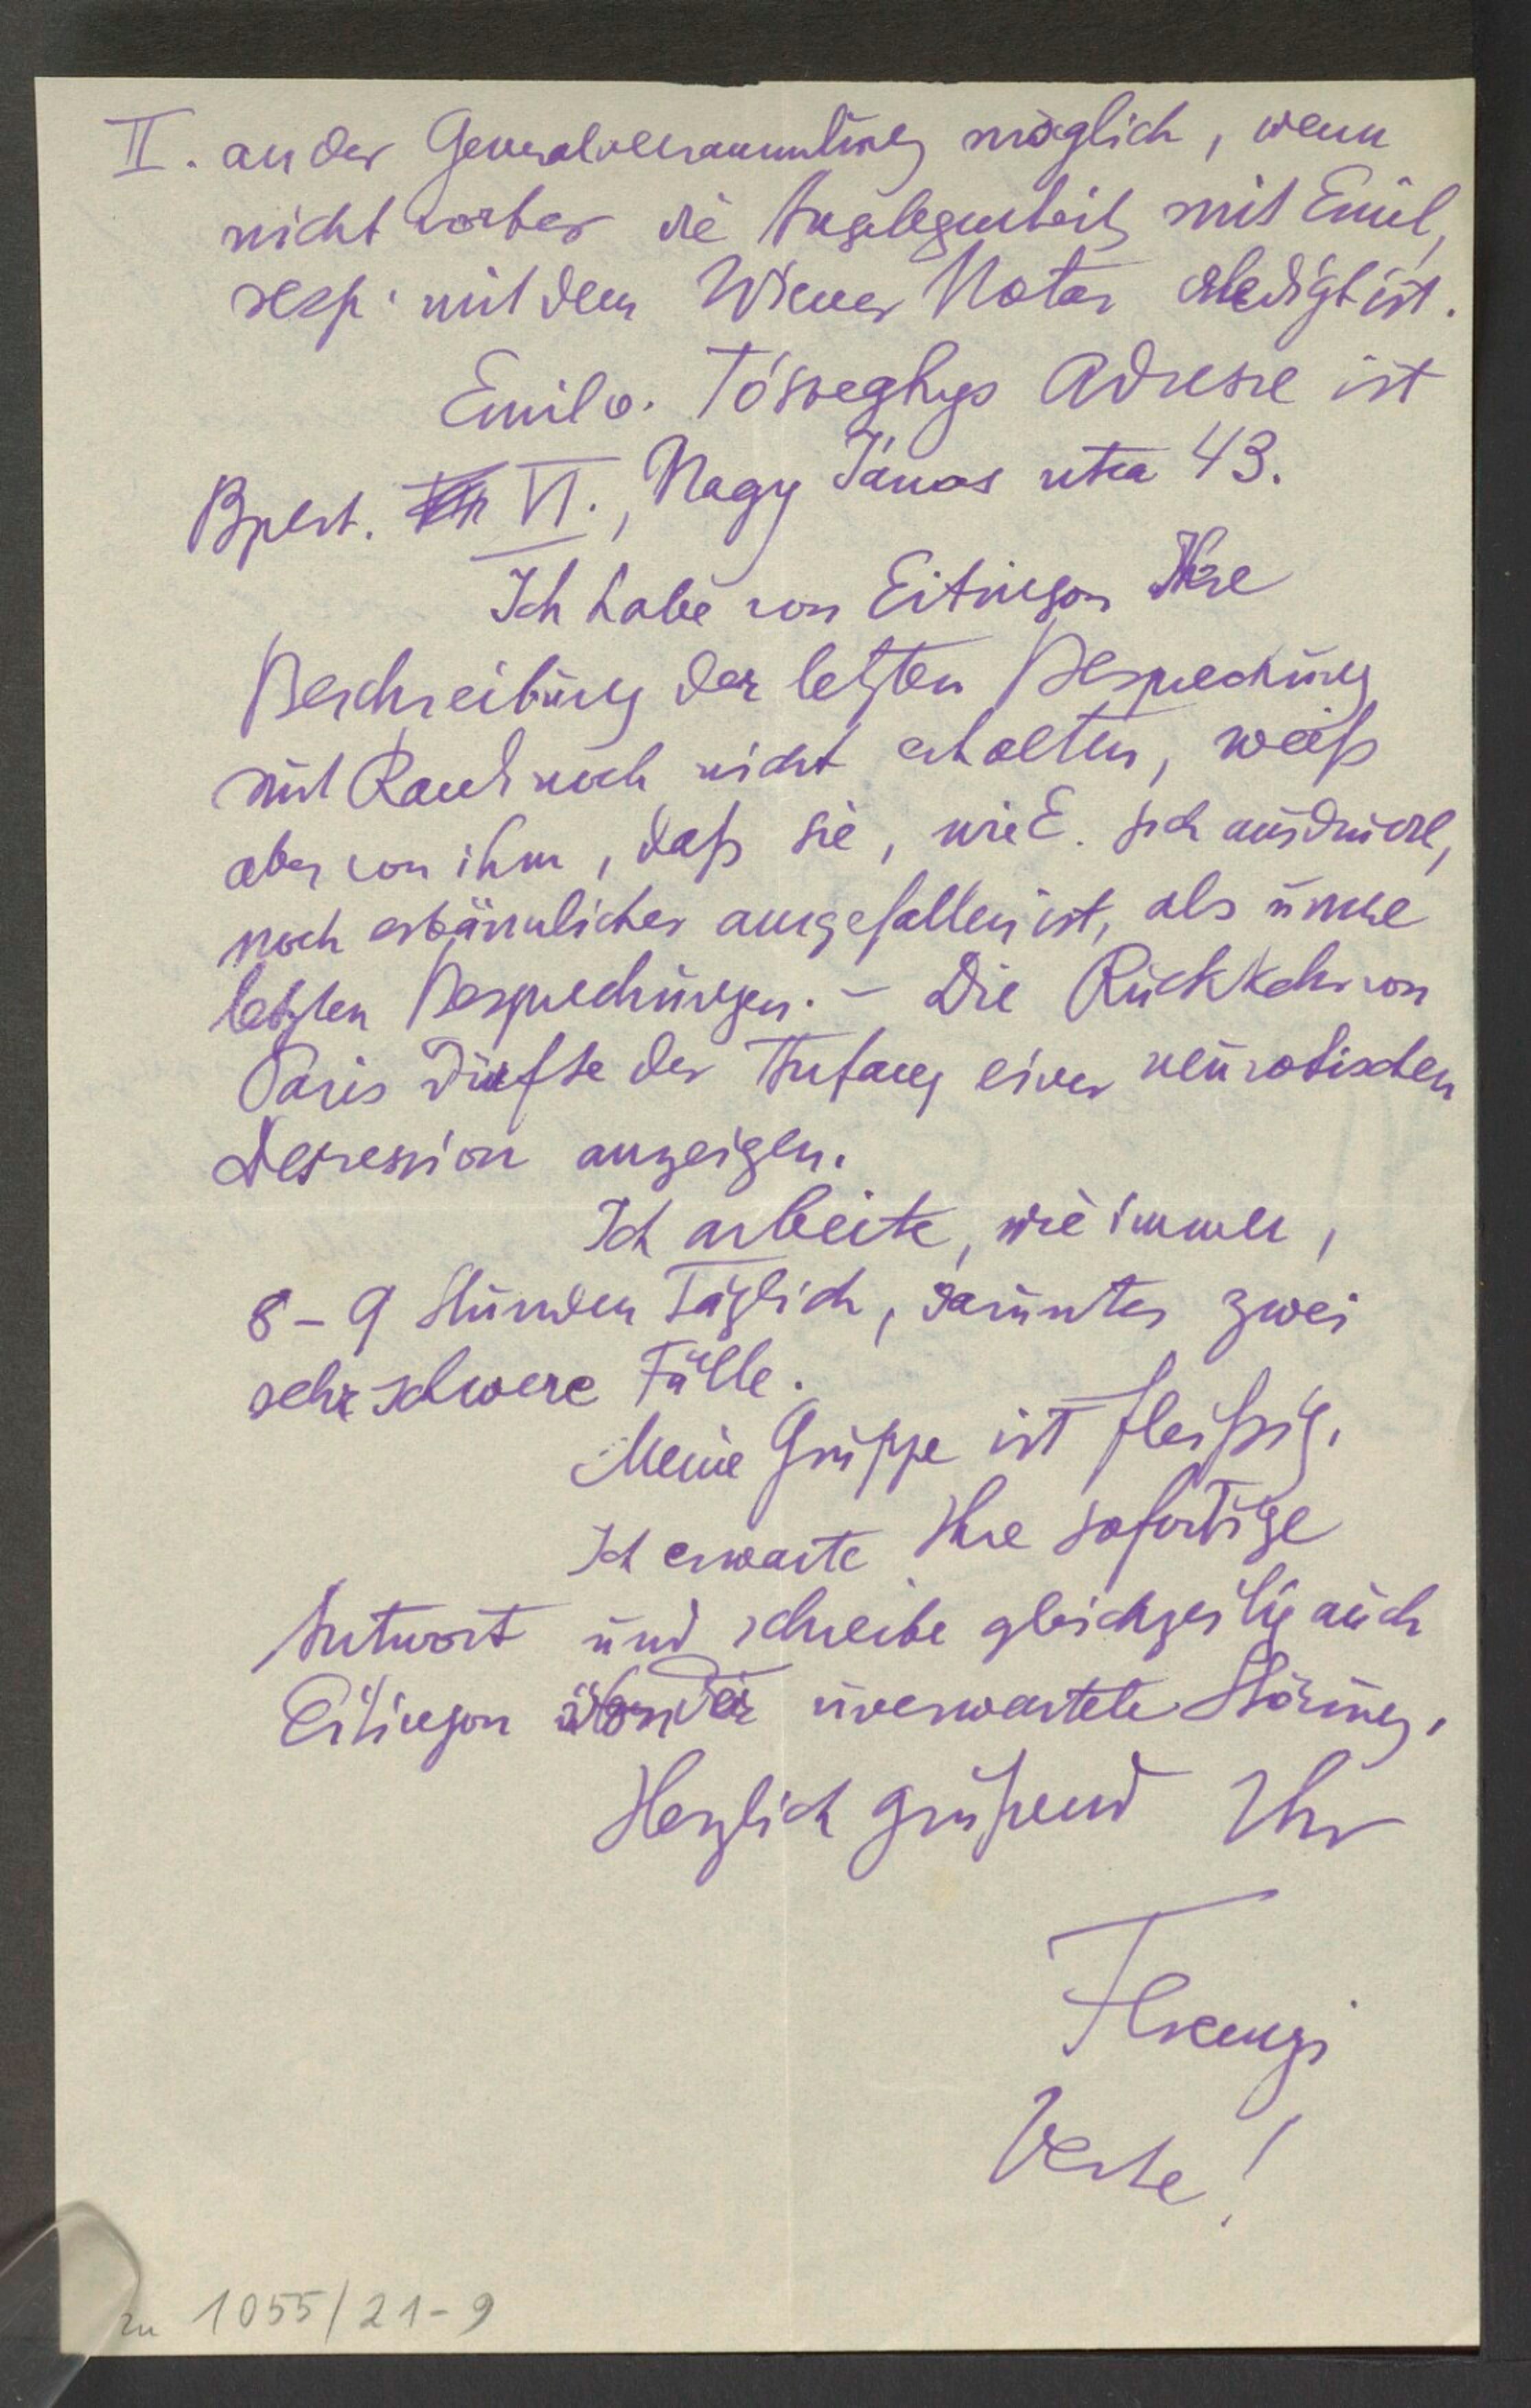 II. an der Generalversammlung möglich, wenn
nicht vorher die Angelegenheit mit Emil,
resp. mit dem Wiener Notar erledigt ist.
Emil v. Tószeghys Adresse ist
Bpest. VI., Nagy János utca 43.
Ich habe von Eitingon Ihre
Beschreibung der letzten Besprechung
mit Rank noch nicht erhalten, weiß
aber von ihm, daß sie, wie E. sich ausdrückt,
noch erbärmlicher ausgefallen ist, als unsere
letzten Besprechungen. – Die Rückkehr von
Paris dürfte der Anfang einer neurotischen
Depression anzeigen.
Ich arbeite, wie immer,
8–9 Stunden täglich, darunter zwei
sehr schwere Fälle.
Meine Gruppe ist fleißig.
Ich erwarte Ihre sofortige
Antwort und schreibe gleichzeitig auch
Eitingon über die unerwartete Störung.
Herzlich grüßend Ihr
Ferenczi
Verte!
zu 1055/21-9